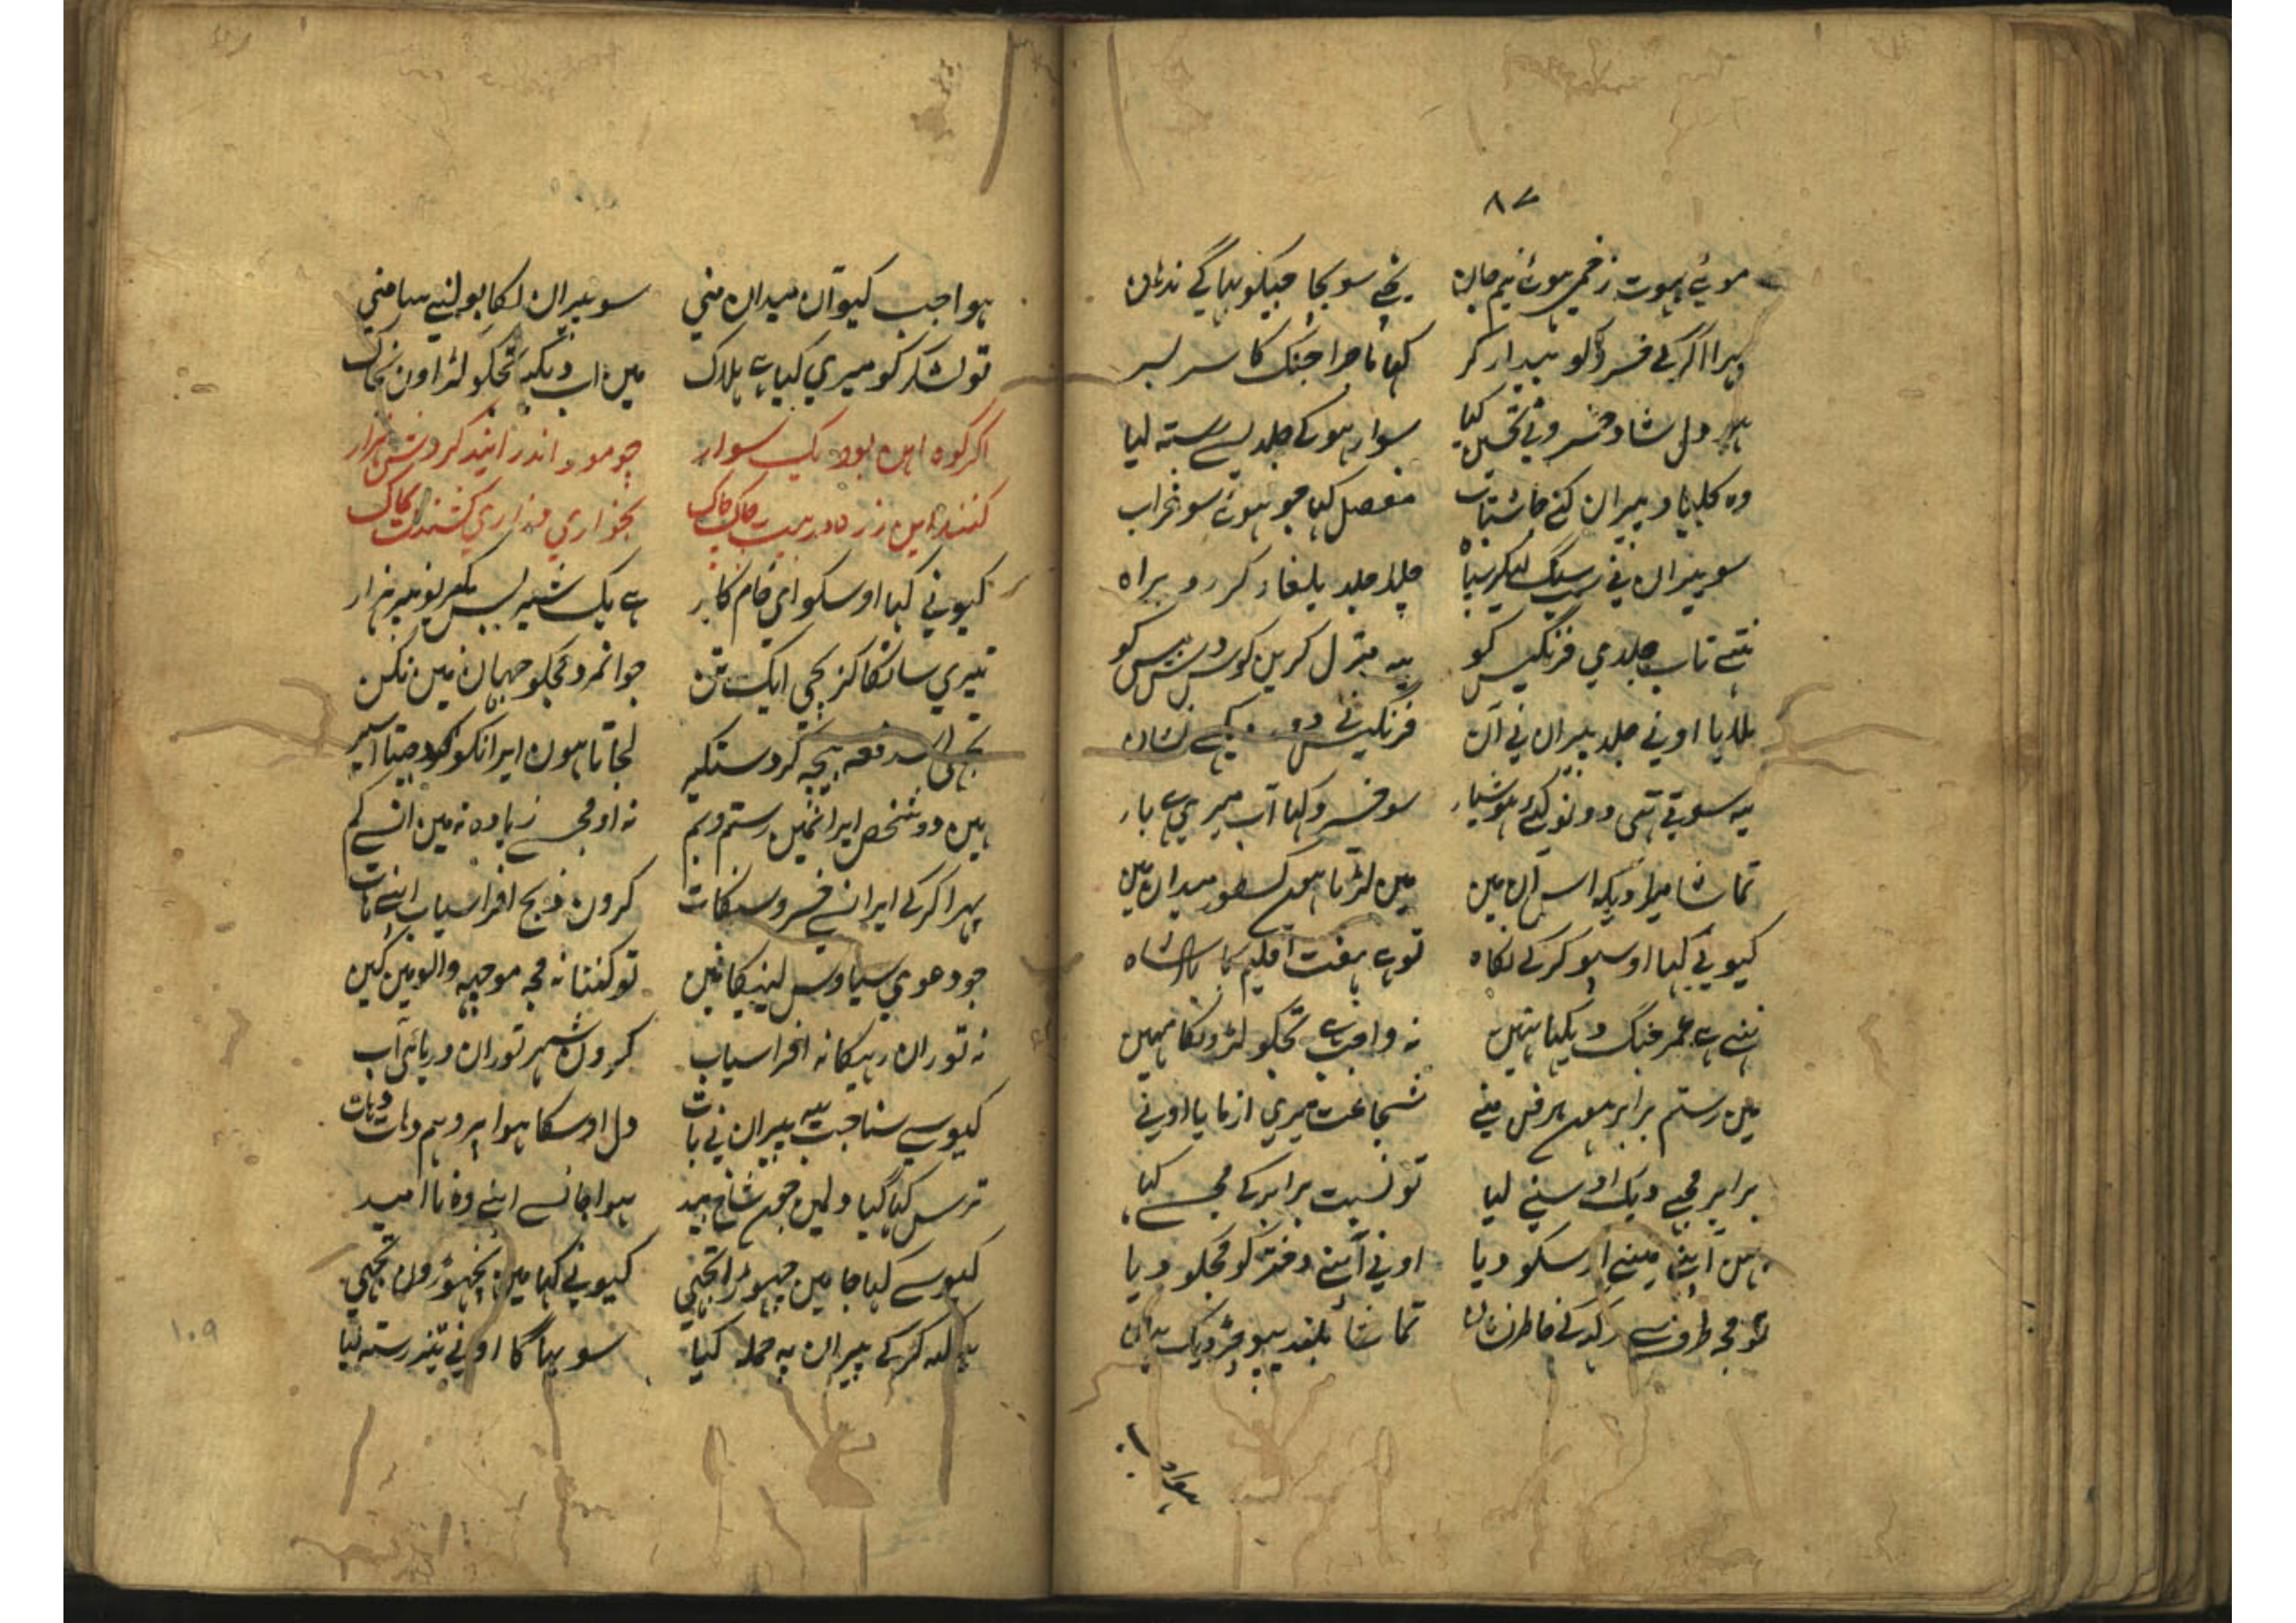 ۸۷
موئے بہوت زخمی ہوئے نیم جان بچے سو بچا جیکو بہاگے ندان
پہرا کرکے خسرو کو بیدار کر کہا ماجرا جنگ کا سر بسر
ہو دل شاد خسرو نے تحسین کیا سوار ہو کے جلد سے رستہ لیا
وہ کلباد پیران کنے جا شتاب مفصل کہا جو ہوئے سو خراب
سو پیران نے سنگ لیکر سپاہ چلا جلد یلغار کر رو براہ
تاب جلدی فرنگیس کو یہ منزل کریں کوس دس بیس کو
ملایا اونے جلد پیران نے آن فرنگیس نے دیکہے نشان
یہ سوتے تہے دونو کئے ہوشیار سو خسرو کہا اب میری ہے بار
تماشا میرا دیکہ اس آن میں میں لڑتا ہوں کسطور میدان میں
کیو نے کہا اوسکو کرکے نگاہ تو ہے ہفت اقلیم کا بادشاہ
ہے عمر جنگ دیکہا نہیں نہ واجب ہے تجکو لڑونگا مہیں
میں رستم برابر ہوں ہر فن منے شجاعت میری ازمایا اونے
برابر مجے دیک اوسنے لیا تو نسبت برابر کے مجسے کیا
بہن اپنے مینے اوسکو دیا اونے اپنے دختر کو مجکو دیا
تو مجہ طرف سے رکہ کے خاطر نشان تماشا بلند ہو دیک
ہوا جب کیو آن میدان منی سو پیران لگا بولنے سامنی
تو لشکر کو میری کیا ہے ہلاک میں اب دیکہ تجکو لڑاون بخاک
اگر کوہ اہن بود یک سوار چو مور اندر ایند گردش ہزار
کنند این زرہ در برت چاک چاک بخواری و زاری کشندت بخاک
کیو نے کہا اوسکو ای خام کار ہے یک شیر بس ہزار
تیری سات کا گر بچی ایک تن جوانمرد مجکو جہان میں نکن
بہی اسدفعہ تجہ کر دستگیر لجاتا ہوں ایرانکو جیتا اسیر
ہیں دو شخص ایرانمیں رستم و ہم نہ او مجسے زیادہ نہ میں انسے کم
پہرا کرکے ایرانسے خسرو سنگات کروں ذبح افراسیاب اپنے ہات
جو دعوی سیاوس لینیکا نیں تو کفتا نہ مجہ موچہ والو میں کیں
نہ توران رہیگا نہ افراسیاب کروں شہر توران دریائی آب
کیو سے سنا جب یہ پیران نے بات دل اوسکا ہوا بہر وہم وہات
ترس کہا گیا دلمیں جوں شاخ بید ہوا جانسے اپنے وہ ناامید
کیو سے کہا جا میں چہوڑا تجہی کیو نے کہا میں نچہوڑوں تجہی
یہ کہہ کرکے پیران پہ حملہ کیا سو بہاگا اونے تیز رستہ لیا
۱۰۹